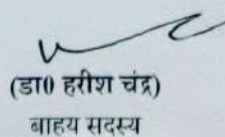 (डा0 हरीश चंद्र)
बाहय सदस्य